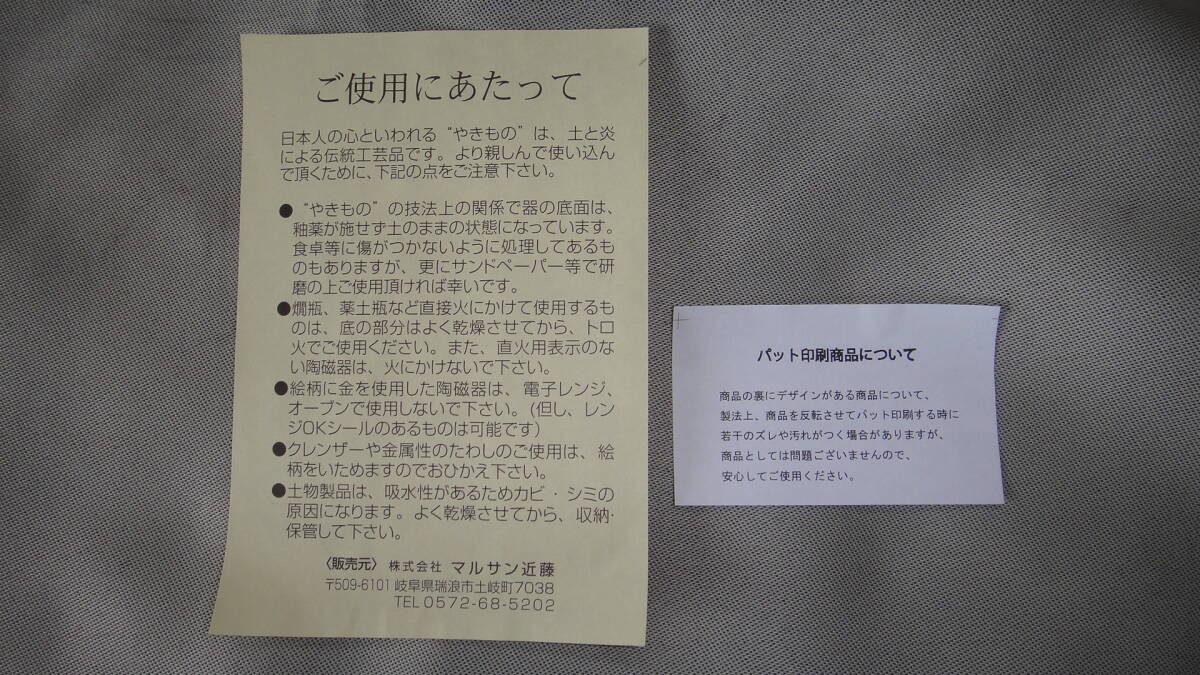 ご使用にあたって
日本人の心といわれる “やきもの” は、土と炎
による伝統工芸品です。より親しんで使い込ん
で頂くために、下記の点をご注意下さい。
● “やきもの” の技法上の関係で器の底面は、
釉薬が施せず土のままの状態になっています。
食卓等に傷がつかないように処理してあるも
のもありますが、更にサンドペーパー等で研
磨の上ご使用頂ければ幸いです。
●燗瓶、薬土瓶など直接火にかけて使用するも
のは、底の部分はよく乾燥させてから、トロ
火でご使用ください。また、直火用表示のな
い陶磁器は、火にかけないで下さい。
●絵柄に金を使用した陶磁器は、電子レンジ、
オーブンで使用しないで下さい。(但し、レン
ジOKシールのあるものは可能です)
●クレンザーや金属性のたわしのご使用は、絵
柄をいためますのでおひかえ下さい。
●土物製品は、吸水性があるためカビ・シミの
原因になります。よく乾燥させてから、収納・
保管して下さい。
〈販売元〉 株式会社 マルサン近藤
〒509-6101 岐阜県瑞浪市土岐町7038
TEL 0572-68-5202
パット印刷商品について
商品の裏にデザインがある商品について、
製法上、商品を反転させてパット印刷する時に
若干のズレや汚れがつく場合がありますが、
商品としては問題ございませんので、
安心してご使用ください。